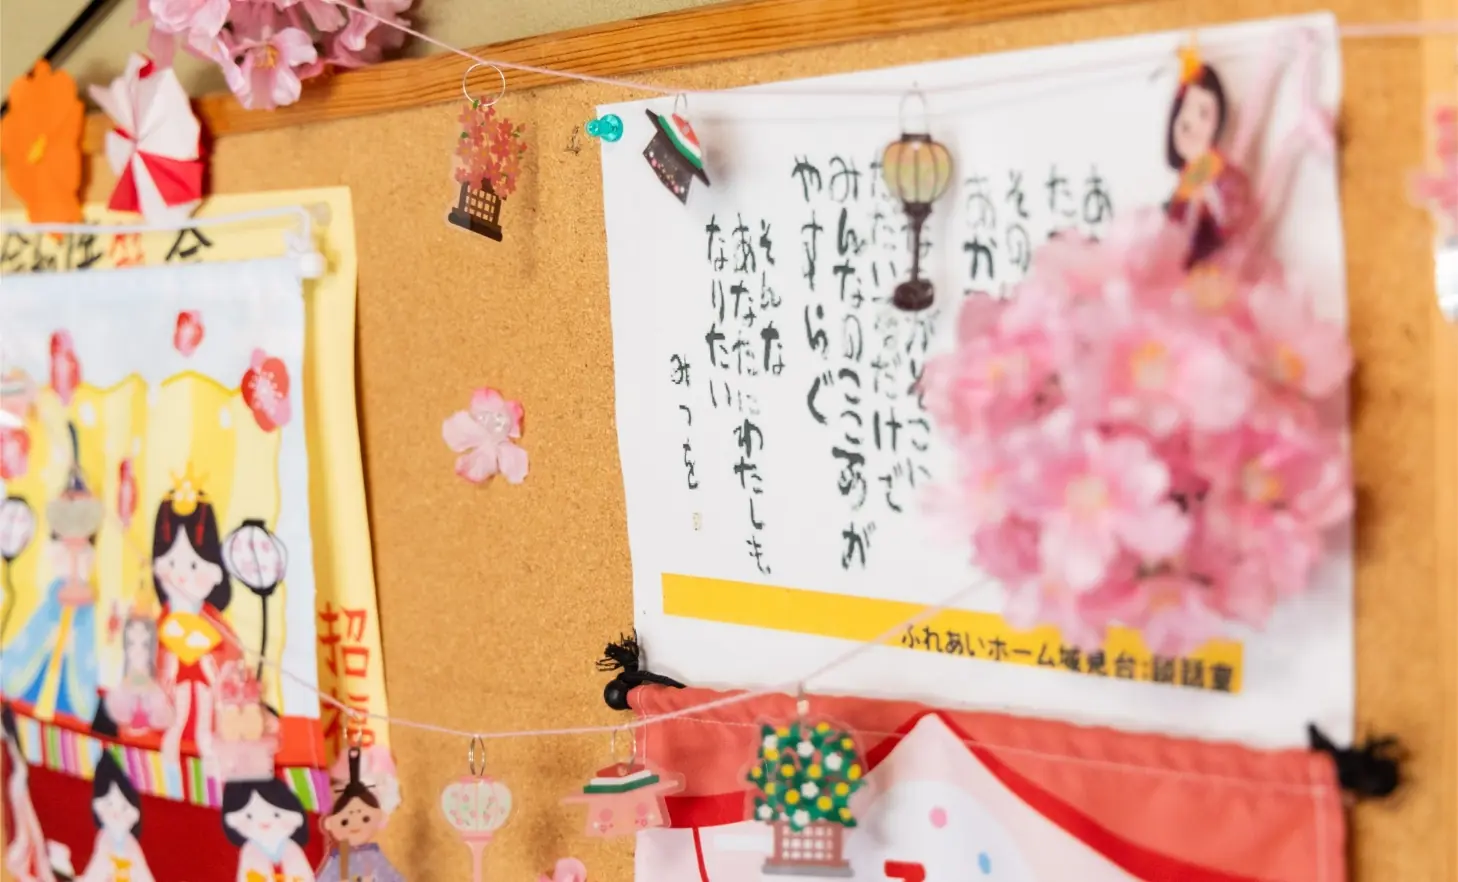 あ
た
その
あか
な がそこに
ただいるだけで
みんなのこころが
やすらぐ
そんな
あなたにわたしも
なりたい
みつを
ふれあいホーム城見台:談話室
会
招福